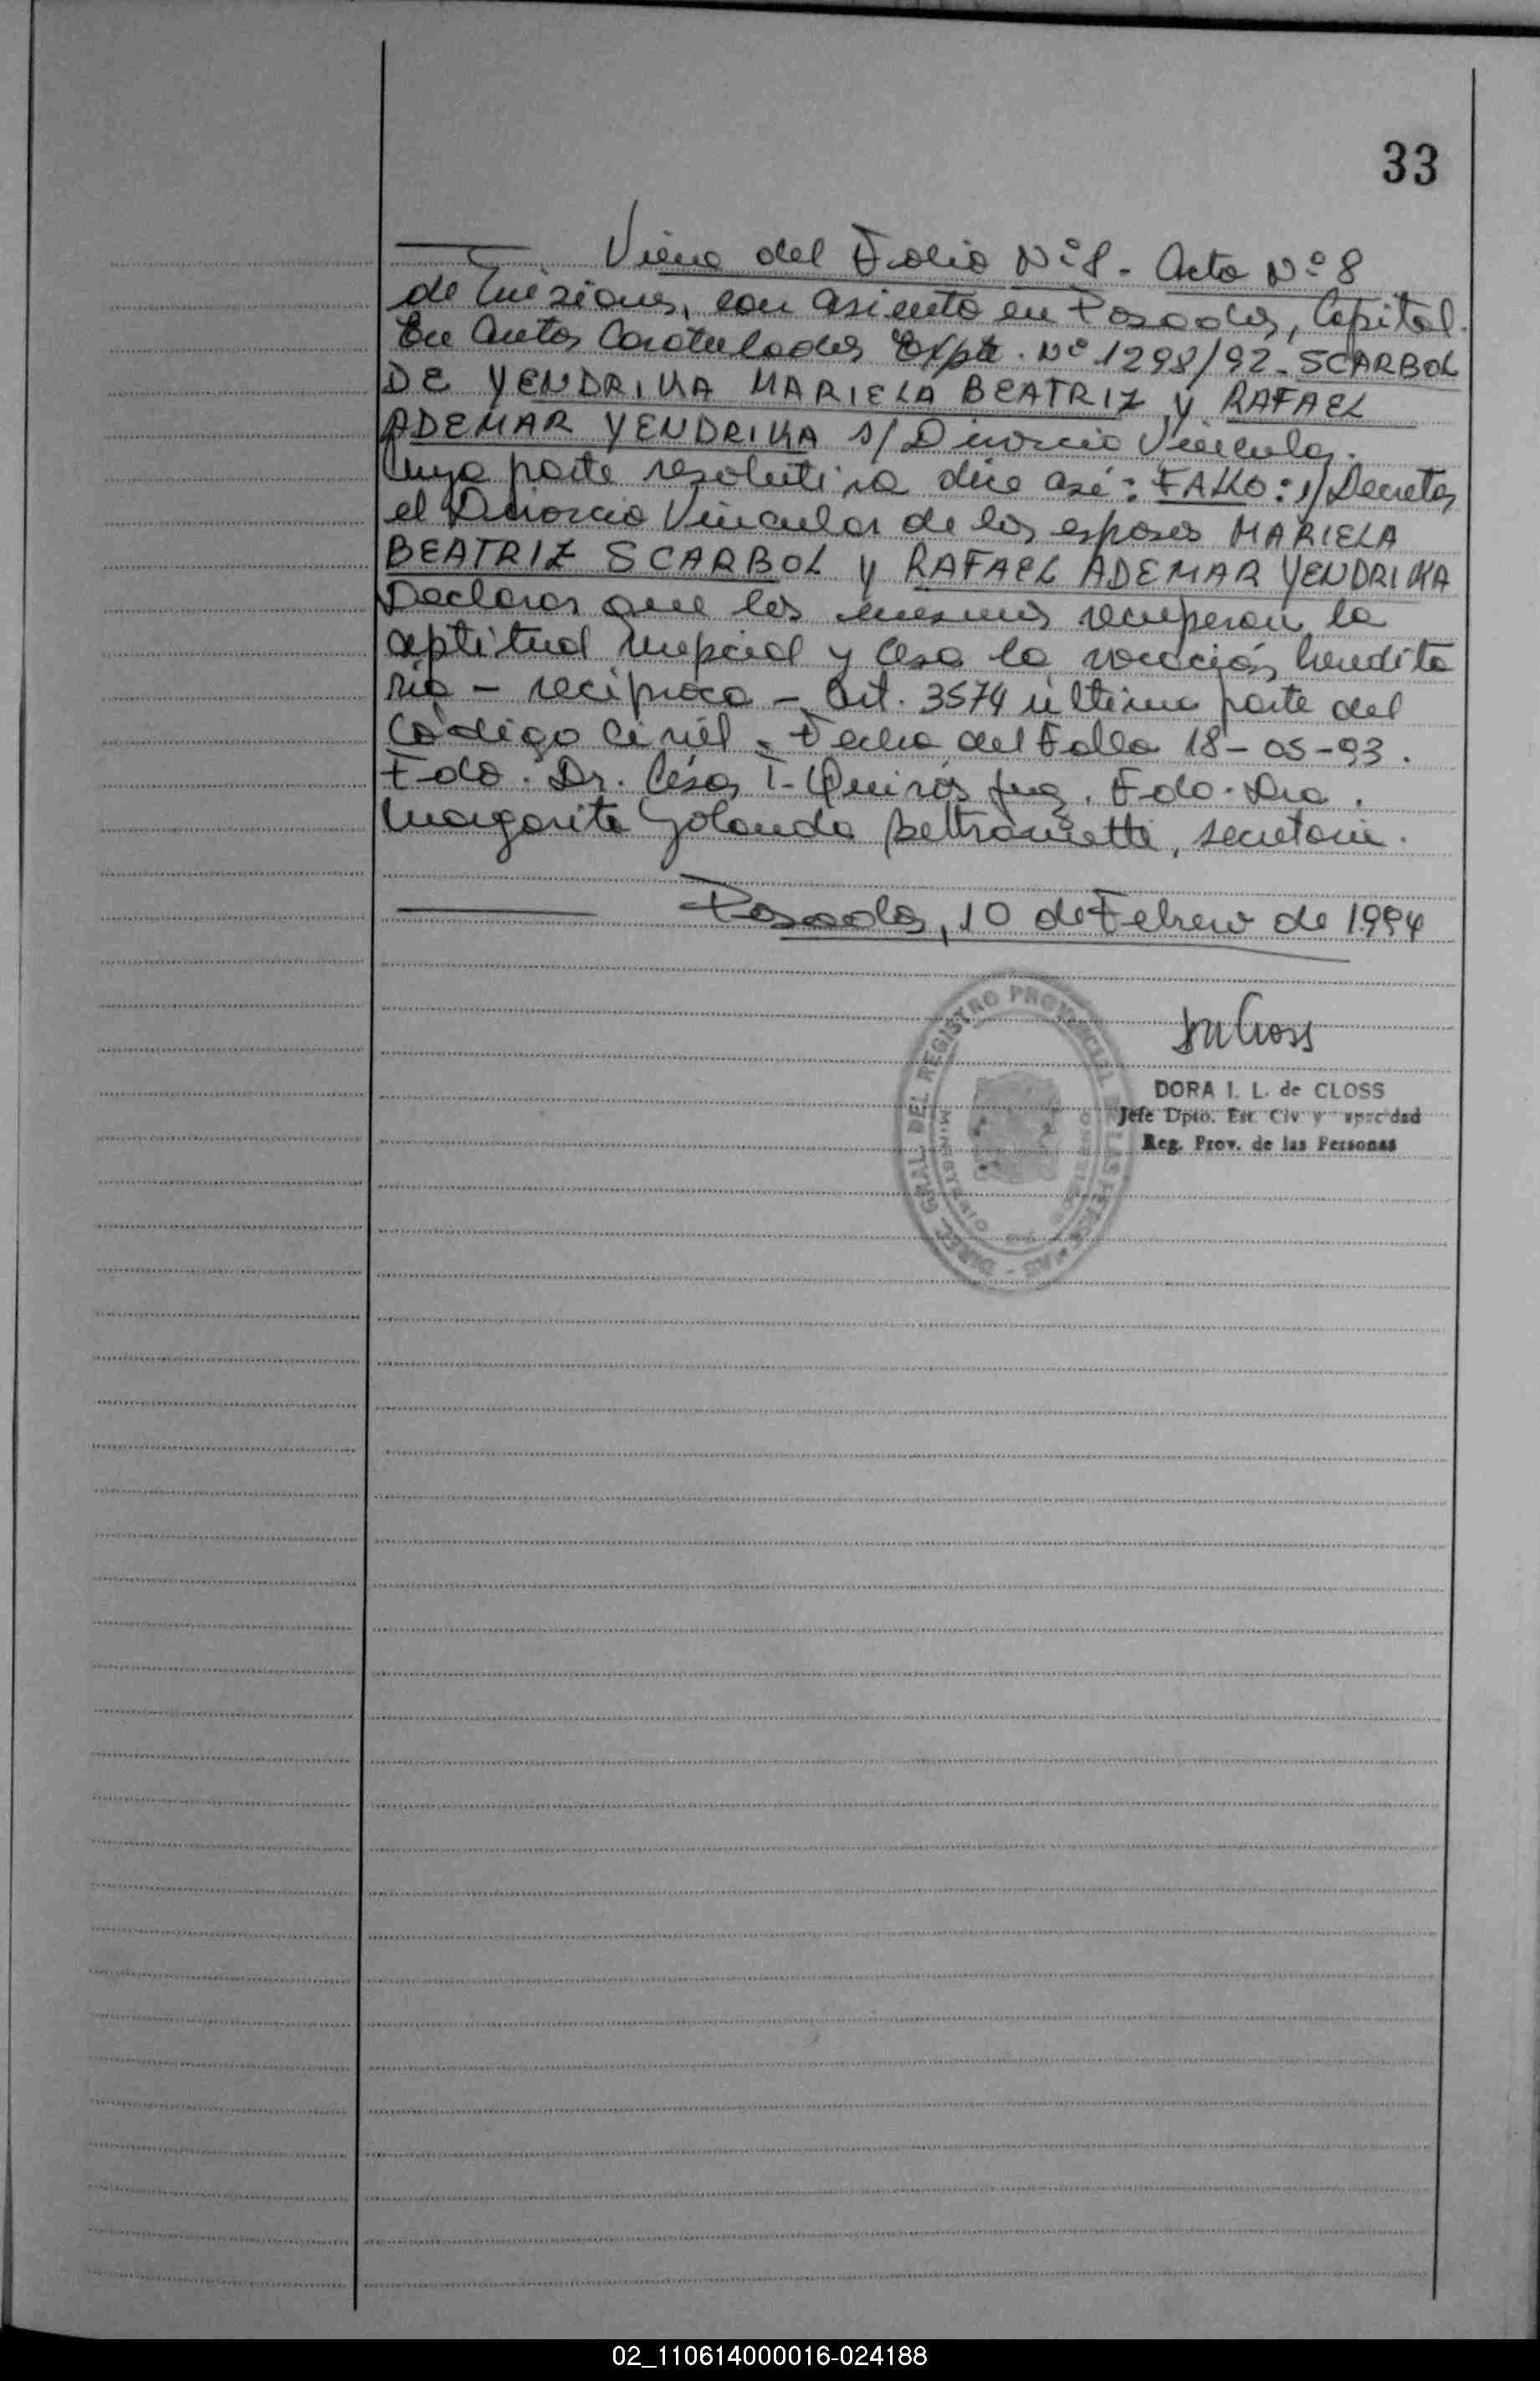 33
Viene del Folio Nº 8 - Acta Nº 8
de Misiones, con asiento en Posadas, Capital.
En Autos Caratulados Expte. Nº 1298/92 - SCARBOL
DE YENDRIKA MARIELA BEATRIZ y RAFAEL
ADEMAR YENDRIKA s/ Divorcio Vincular.
Cuya parte resolutiva dice así: FALLO: 1/ Decretar
el Divorcio Vincular de los esposos MARIELA
BEATRIZ SCARBOL y RAFAEL ADEMAR YENDRIKA
Declarar que los mismos recuperan la
aptitud nupcial y cesa la vocación heredita
ria - recíproca - Art. 3574 última parte del
Código Civil. Fecha del Fallo 18-05-93.
Fdo. Dr. César I. Quirós Juez. Fdo. Dra.
Margarita Yolanda Beltrametti, secretaria.
Posadas, 10 de Febrero de 1994
DORA I. L. de CLOSS
Jefe Dpto. Est. Civ y
Reg. Prov. de las Personas
DIREC. GRAL. DEL REGISTRO PROVINCIAL DE LAS PERSONAS
MINISTERIO DE GOBIERNO
02_110614000016-024188